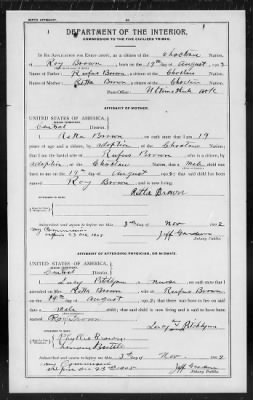 BIRTH AFFIDAVIT.
DEPARTMENT OF THE INTERIOR,
COMMISSION TO THE FIVE CIVILIZED TRIBES.
IN RE APPLICATION FOR ENROLLMENT, as a citizen of the Choctaw Nation,
of Roy Brown, born on the 19th day of August, 190
Name of Father: Rufus Brown a citizen of the Choctaw Nation.
Name of Mother: Retta Brown a citizen of the Choctaw Nation.
Post-Office:
AFFIDAVIT OF MOTHER.
UNITED STATES OF AMERICA,
INDIAN TERRITORY,
Central District.
I, Retta Brown, on oath state that I am 19
years of age and a citizen, by adoption of the Choctaw Nation;
that I am the lawful wife of Rufus Brown, who is a citizen, by
adoption of the Choctaw Nation; that a male child was
born to me on 19th day of August, 190; that said child has been named
Roy Brown, and is now living.
Retta Brown
WITNESSES TO MARK:
Subscribed and sworn to before me this 3rd day of Nov, 1902
My Commission
Jeff Gardner
Notary Public.
AFFIDAVIT OF ATTENDING PHYSICIAN, OR MIDWIFE.
UNITED STATES OF AMERICA,
INDIAN TERRITORY,
Central District.
I, Lucy, a nurse, on oath state that I
attended on Mrs. Retta Brown, wife of Rufus Brown
on the 19th day of August, 190; that there was born to her on said date a
male child; that said child is now living and is said to have been named
Roy Brown
Lucy
WITNESSES TO MARK:
Brown
Subscribed and sworn to before me this 3rd day of Nov, 1902
My Commission
Jeff Gardner
Notary Public.